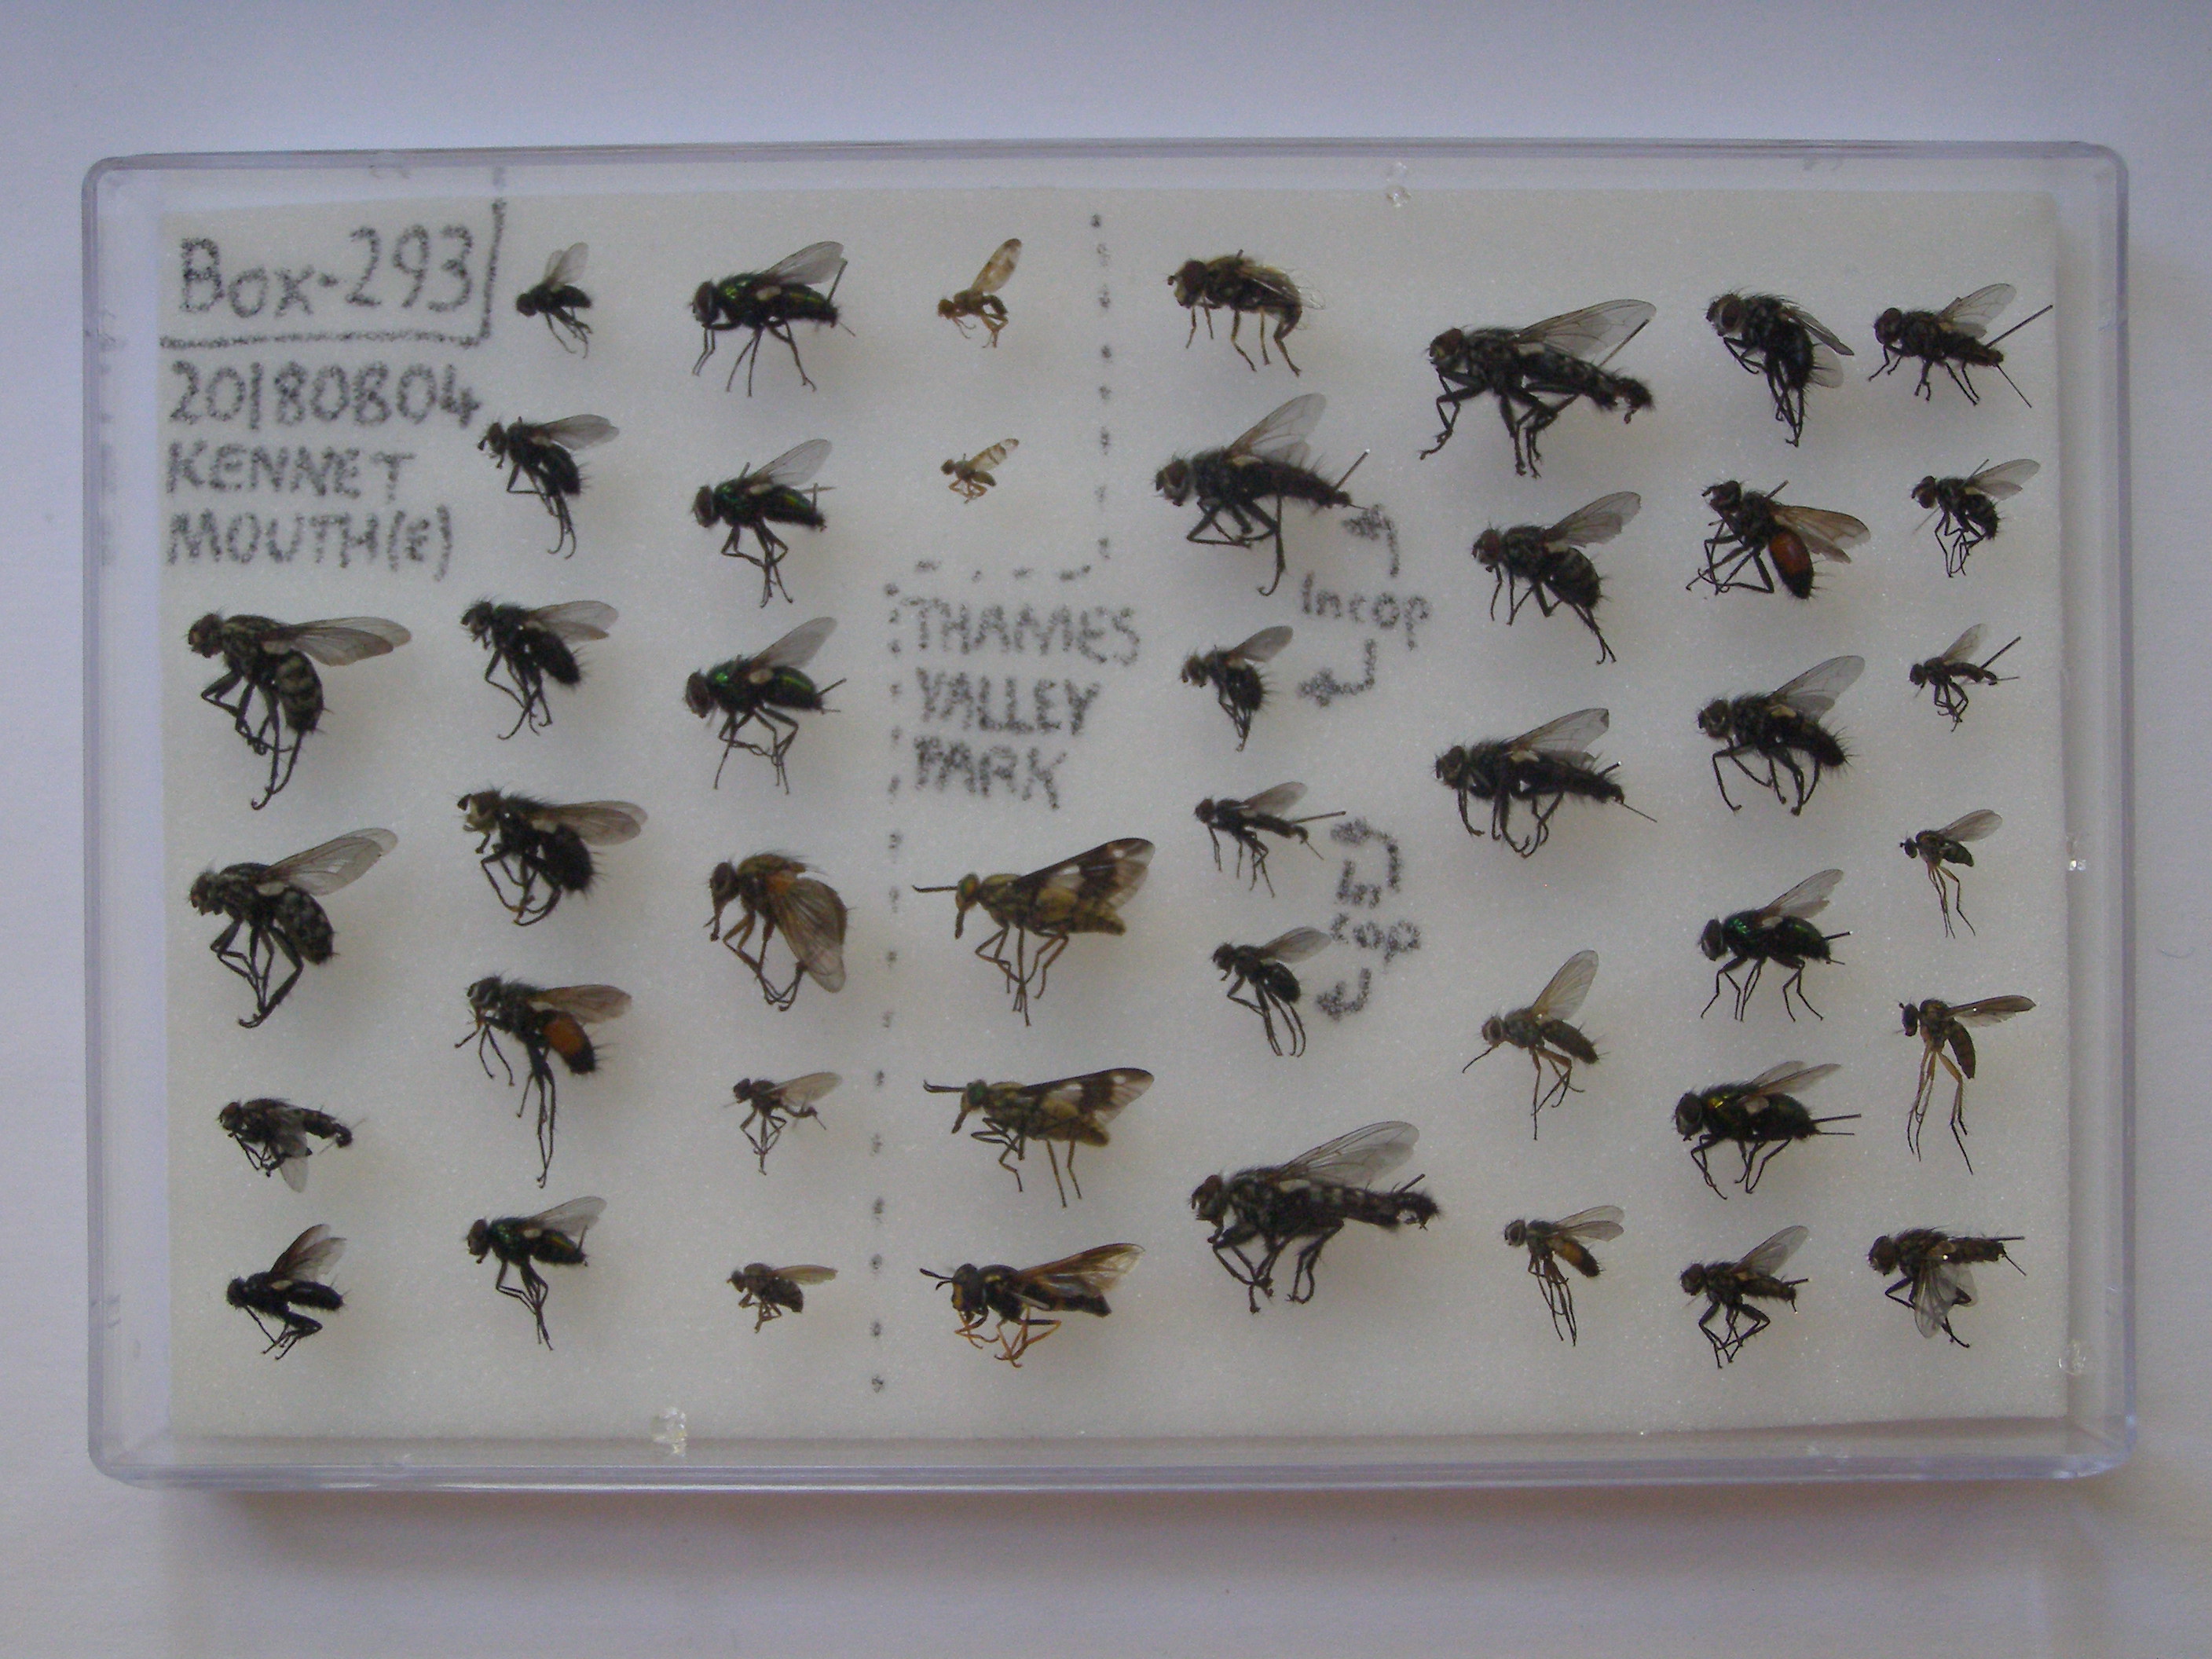 Box-293
20180804
KENNET
MOUTH(E)
THAMES
VALLEY
PARK
In cop
In
cop